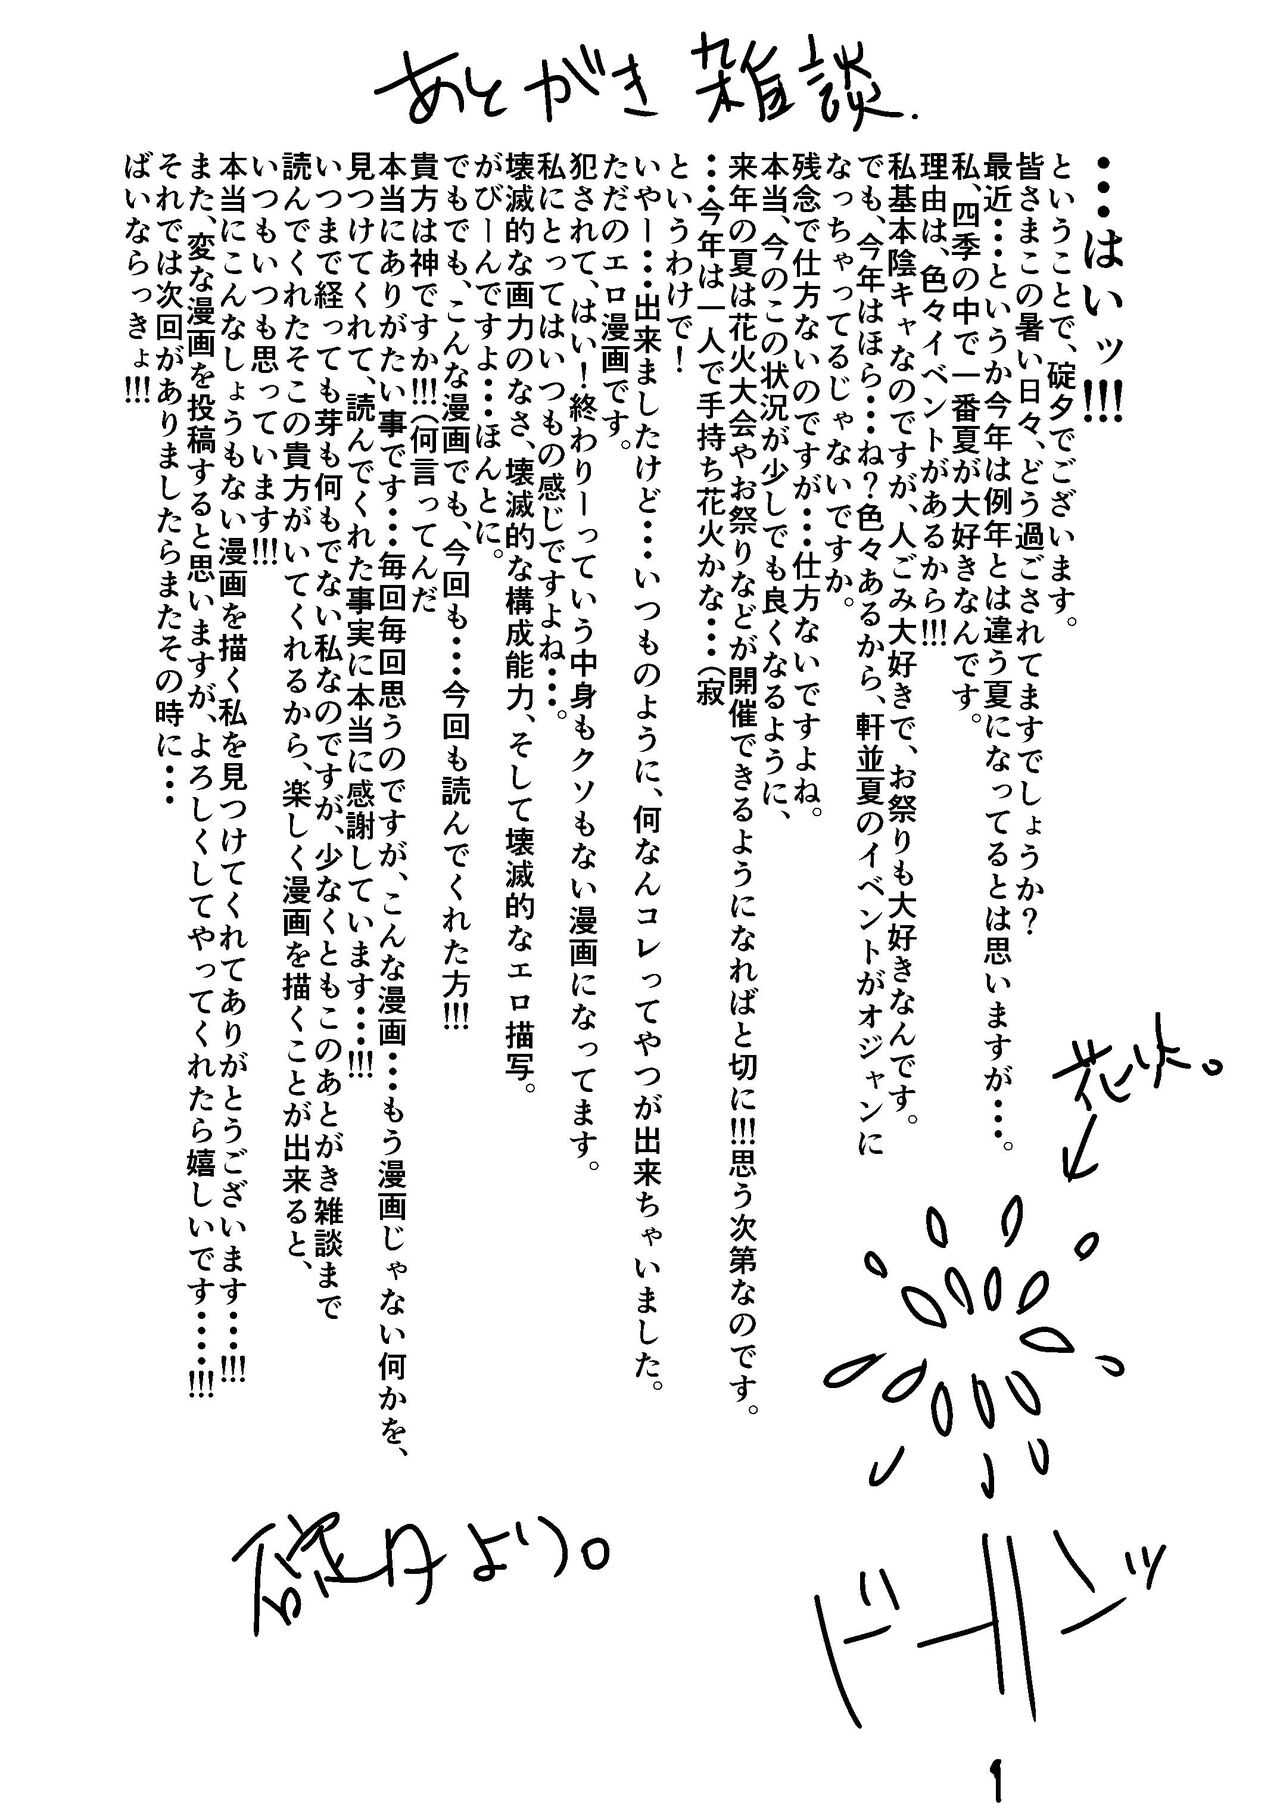 あとがき雑談.
・・・はいッ!!!
ということで、碇夕でございます。
皆さまこの暑い日々、どう過ごされてますでしょうか？
最近・・・というか今年は例年とは違う夏になってるとは思いますが・・・。
私、四季の中で一番夏が大好きなんです。
理由は、色々イベントがあるから!!!
私基本陰キャなのですが、人ごみ大好きで、お祭りも大好きなんです。
でも、今年はほら・・・ね？色々あるから、軒並夏のイベントがオジャンに
なっちゃってるじゃないですか。
残念で仕方ないのですが・・・仕方ないですよね。
本当、今のこの状況が少しでも良くなるように、
来年の夏は花火大会やお祭りなどが開催できるようになればと切に!!!思う次第なのです。
・・・今年は一人で手持ち花火かな・・・(寂
というわけで！
いやー・・・出来ましたけど・・・いつものように、何なんコレってやつが出来ちゃいました。
ただのエロ漫画です。
犯されて、はい！終わりーっていう中身もクソもない漫画になってます。
私にとってはいつもの感じですよね・・・。
壊滅的な画力のなさ、壊滅的な構成能力、そして壊滅的なエロ描写。
がびーんですよ・・・ほんとに。
でもでも、こんな漫画でも、今回も・・・今回も読んでくれた方!!!
貴方は神ですか!!!(何言ってんだ
本当にありがたい事です・・・毎回毎回思うのですが、こんな漫画・・・もう漫画じゃない何かを、
見つけてくれて、読んでくれた事実に本当に感謝しています・・・!!!
いつまで経っても芽も何もでない私なのですが、少なくともこのあとがき雑談まで
読んでくれたそこの貴方がいてくれるから、楽しく漫画を描くことが出来ると、
いつもいつも思っています!!!
本当にこんなしょうもない漫画を描く私を見つけてくれてありがとうございます・・・!!!
また、変な漫画を投稿すると思いますが、よろしくしてやってくれたら嬉しいです・・・・!!!
それでは次回がありましたらまたその時に・・・
ばいならっきょ!!!
花火。
ドーンッ
碇夕より。